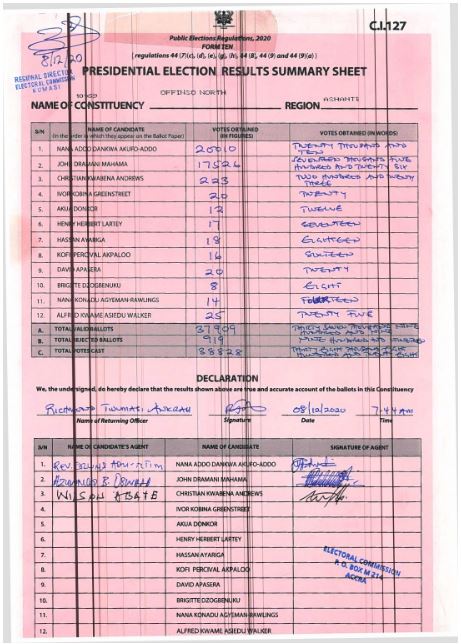 C.I.127
Public Elections Regulations, 2020
FORM TEN
( regulations 44 (7)(c), (d), (e), (g), (h), 44 (8), 44 (9) and 44 (9)(a) )
8/12/20
REGIONAL DIRECTOR
ELECTORAL COMMISSION
KUMASI
PRESIDENTIAL ELECTION RESULTS SUMMARY SHEET
NAME OF CONSTITUENCY OFFINSO NORTH REGION ASHANTI
S/N NAME OF CANDIDATE (In the order in which they appear on the Ballot Paper) VOTES OBTAINED (IN FIGURES) VOTES OBTAINED (IN WORDS)
1. NANA ADDO DANKWA AKUFO-ADDO 20010 TWENTY THOUSAND AND TEN
2. JOHN DRAMANI MAHAMA 17526 SEVENTEEN THOUSAND FIVE HUNDRED AND TWENTY SIX
3. CHRISTIAN KWABENA ANDREWS 223 TWO HUNDRED AND TWENTY THREE
4. IVOR KOBINA GREENSTREET 20 TWENTY
5. AKUA DONKOR 12 TWELVE
6. HENRY HERBERT LARTEY 17 SEVENTEEN
7. HASSAN AYARIGA 18 EIGHTEEN
8. KOFI PERCIVAL AKPALOO 16 SIXTEEN
9. DAVID APASERA 20 TWENTY
10. BRIGITTE DZOGBENUKU 8 EIGHT
11. NANA KONADU AGYEMAN-RAWLINGS 14 FOURTEEN
12. ALFRED KWAME ASIEDU WALKER 25 TWENTY FIVE
A. TOTAL VALID BALLOTS 37909 THIRTY SEVEN THOUSAND NINE HUNDRED AND NINE
B. TOTAL REJECTED BALLOTS 919 NINE HUNDRED AND
C. TOTAL VOTES CAST 38828 THIRTY EIGHT THOUSAND EIGHT HUNDRED AND TWENTY EIGHT
DECLARATION
We, the undersigned, do hereby declare that the results shown above are true and accurate account of the ballots in this Constituency
RICHMOND TWUMASI ANKRAH 08/12/2020 7.44AM
Name of Returning Officer Signature Date Time
S/N NAME OF CANDIDATE'S AGENT NAME OF CANDIDATE SIGNATURE OF AGENT
1. REV. NANA ADDO DANKWA AKUFO-ADDO
2. B. JOHN DRAMANI MAHAMA
3. WILSON CHRISTIAN KWABENA ANDREWS
4. IVOR KOBINA GREENSTREET
5. AKUA DONKOR
6. HENRY HERBERT LARTEY
7. HASSAN AYARIGA
8. KOFI PERCIVAL AKPALOO
9. DAVID APASERA
10. BRIGITTE DZOGBENUKU
11. NANA KONADU AGYEMAN-RAWLINGS
12. ALFRED KWAME ASIEDU WALKER
ELECTORAL COMMISSION
P. O. BOX M 214
ACCRA